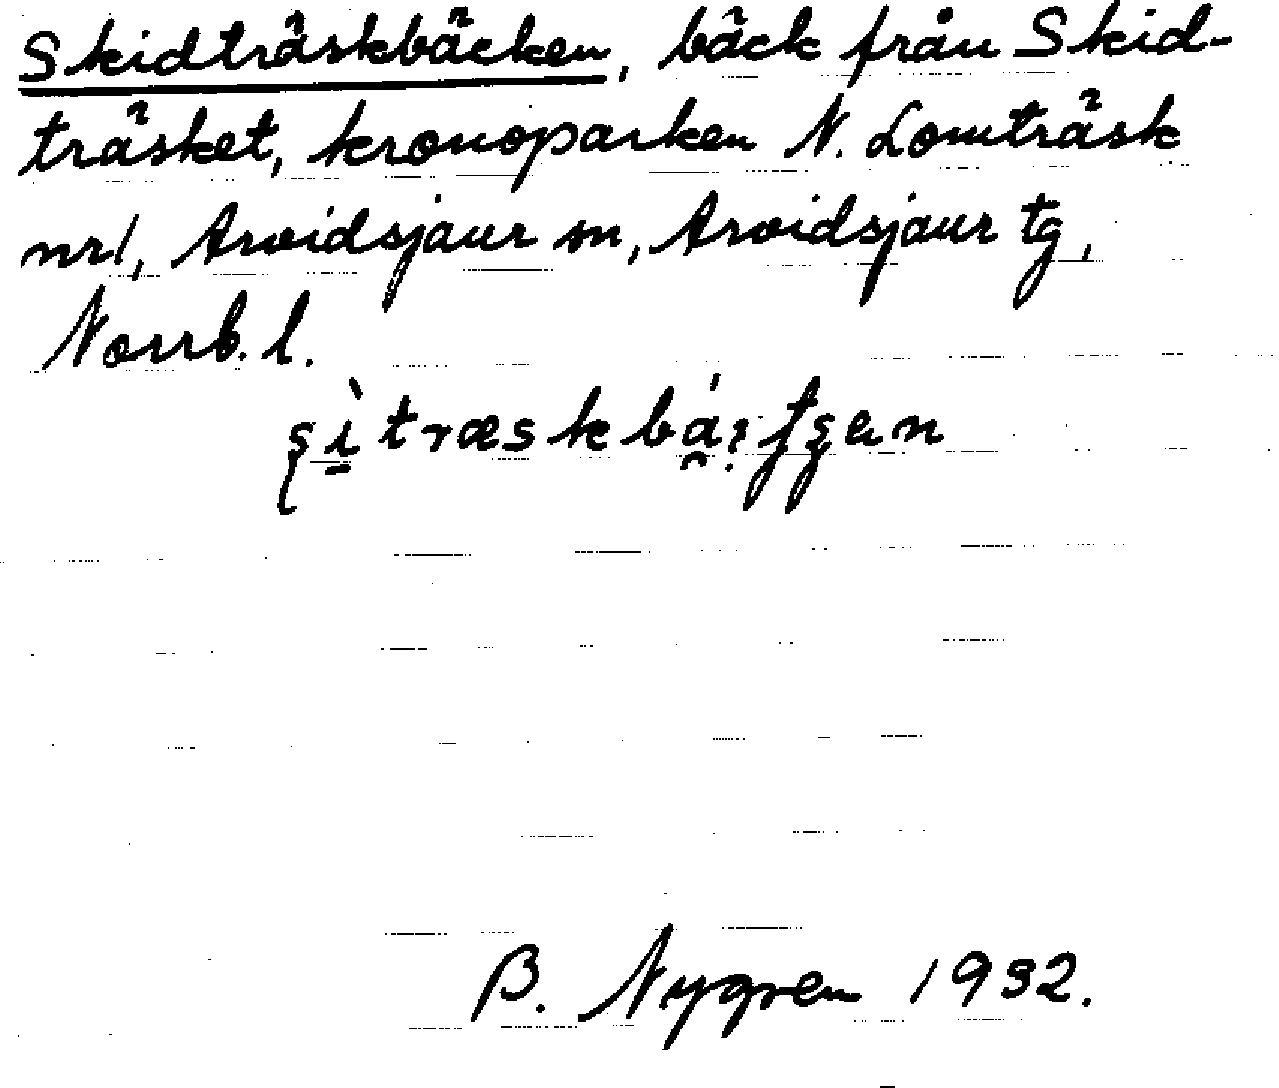 Skidträskbäcken, bäck från Skid-
träsket, kronoparken N. Lomträsk
nr 1, Arvidsjaur sn, Arvidsjaur tg,
Norrb. l.
B. Nygren 1932.